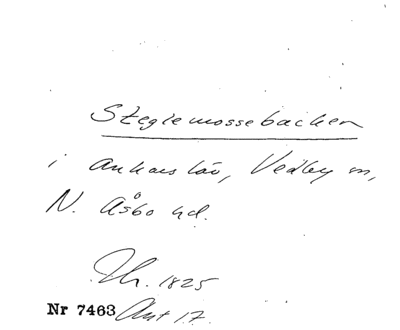 Steglemossebacken
i Ankarslöv, Vedby sn,
N. Åsbo hd.
Th. 1825
Nr 7463 Ant 17.